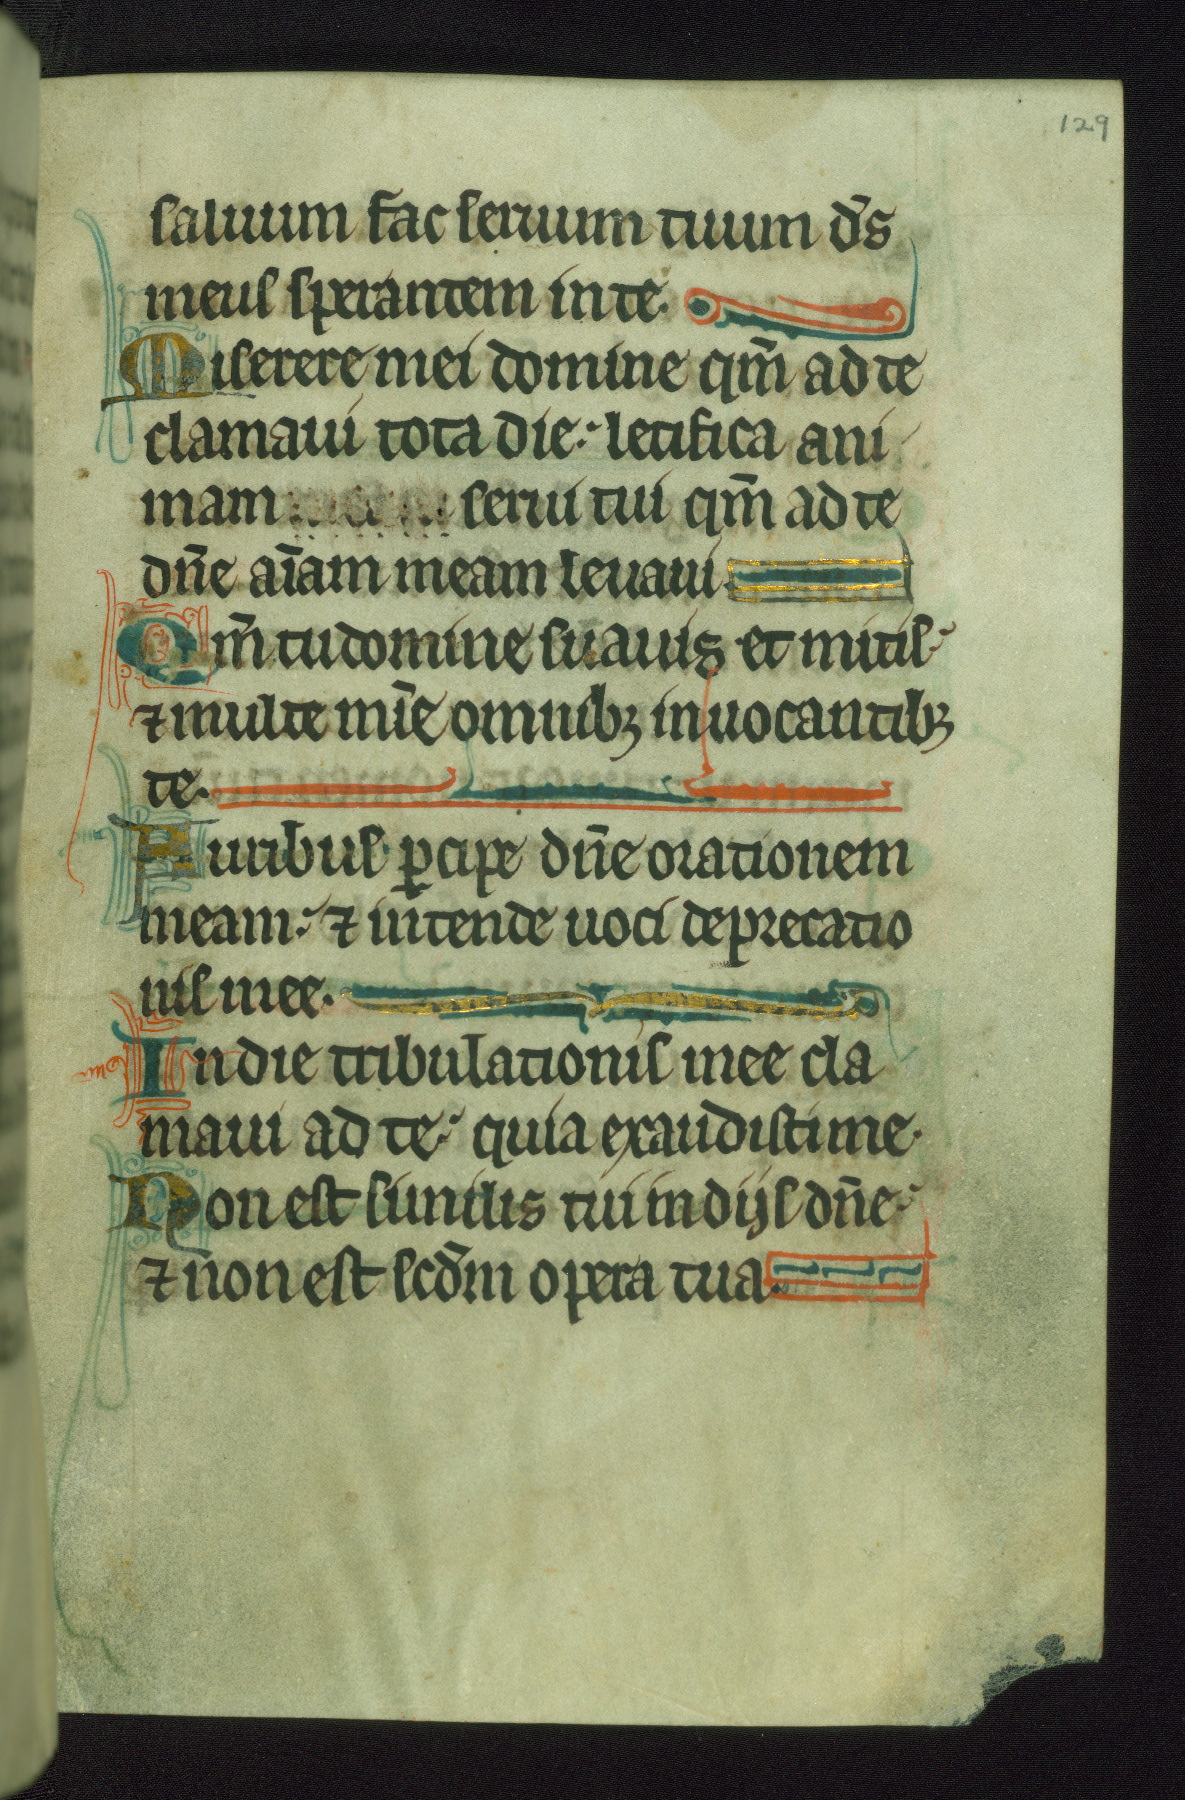 129
saluum fac seruum tuum d̅s
meus sperantem in te.
Miserere mei domine qm̅ ad te
clamaui tota die: letifica ani
mam serui tui qm̅ ad te
dn̅e ai̅am meam leuaui.
Qm̅ tu domine suauis et mitis:
⁊ multe mi̅e omnibꝫ inuocantibꝫ
te.
Auribus ꝑcipe dn̅e orationem
meam: ⁊ intende uoci deprecatio
nis mee.
In die tribulationis mee cla
maui ad te: quia exaudisti me.
Non est similis tui in dijs dn̅e:
⁊ non est scd̅m opera tua.